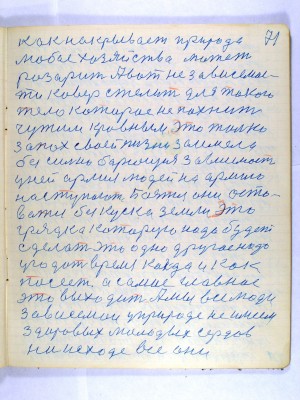 71
как накрывает природа
любое хозяйства может
разарит А вот не зависемас-
ти ковер стелит для такого
тело каторае не пахнит
чужим кровным Это только
запах своей жизни заимела
бессильно барющия зависимост
у ней армия людей на армию
наступают Боятся они оста-
ватся без куска земли Это
грядка каторую надо будет
сделат это одно другое надо
угодат время когда и как
посеет, а самае главнае
это выходит А мы все люди
зависемаи у природе не имеем
здоровых молодых сердов
на исходе все они